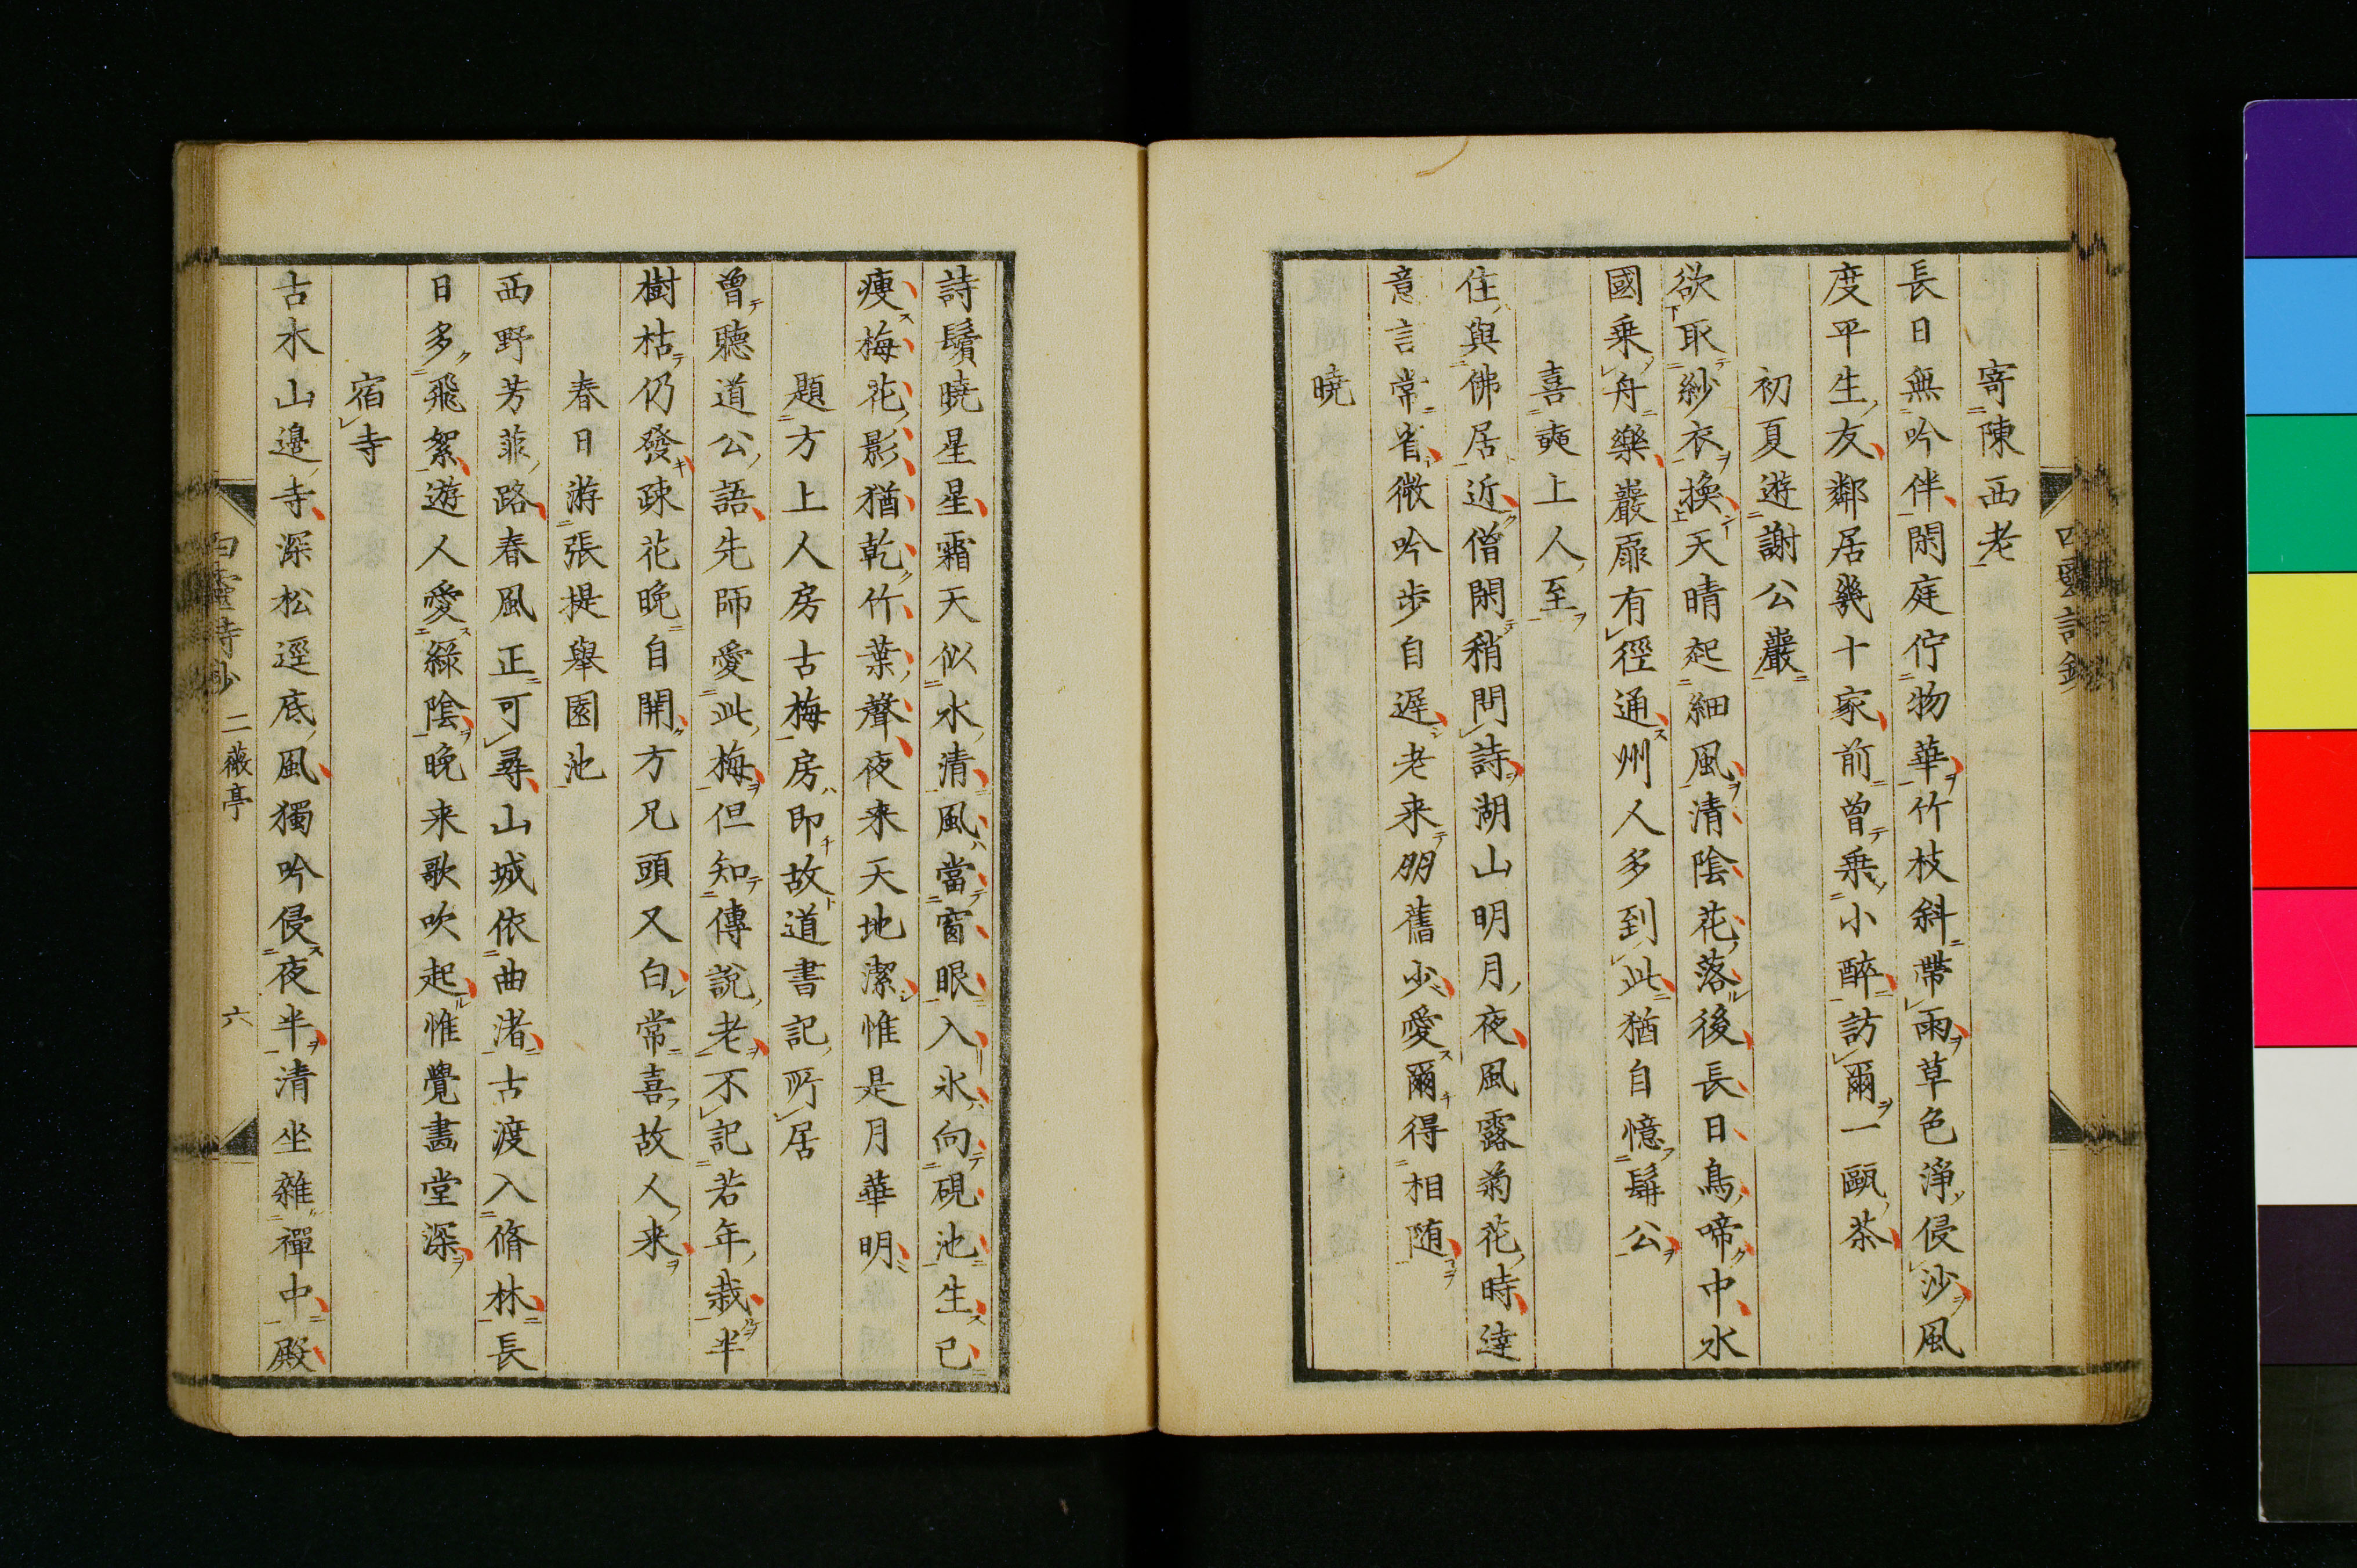 寄陳西老
長日無吟伴閑庭佇物華竹枝斜帶雨草色淨侵沙風
度平生友鄰居幾十家前曾乗小醉訪爾一甌茶
初夏遊謝公巖
欲取紗衣換天晴起細風清陰花落後長日鳥啼中水
國乗舟樂巖扉有徑通州人多到此猶自憶髯公
喜奭上人至
住與佛居近僧閑稍問詩湖山明月夜風露菊花時達
意言常省微吟歩自遲老来朋舊少愛爾得相随
曉
詩鬢曉星星霜天似水清風當窗眼入氷向硯池生已
痩梅花影猶乾竹葉聲夜来天地潔惟是月華明
題方上人房古梅房即故道書記所居
曽聽道公語先師愛此梅但知傳說老不記若年栽半
樹枯仍發疎花晩自開方兄頭又白常喜故人来
春日游張提舉園池
西野芳菲路春風正可尋山城依曲渚古渡入脩林長
日多飛絮遊人愛緑陰晩来歌吹起惟覺畫堂深
宿寺
古木山邉寺深松逕底風獨吟侵夜半清坐雜禪中殿
四靈詩鈔
二薇亭
六